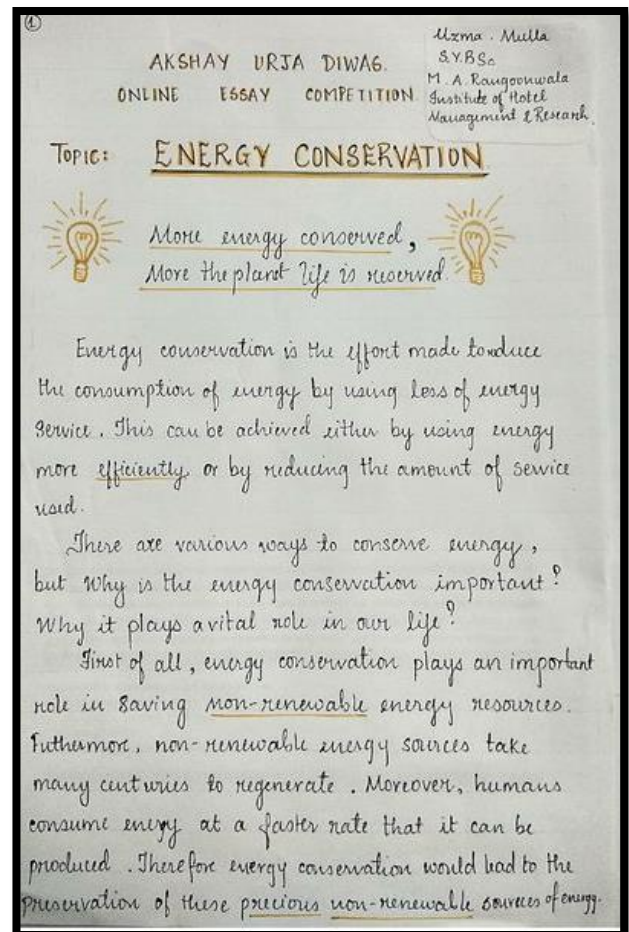 1
Uzma. Mulla
S.Y.BSc
M. A. Rangoonwala
Institute of Hotel
Management & Research.
AKSHAY URJA DIWAS.
ONLINE ESSAY COMPETITION
TOPIC: ENERGY CONSERVATION
More energy conserved,
More the planet life is reserved.
Energy conservation is the effort made to reduce
the consumption of energy by using less of energy
service. This can be achieved either by using energy
more efficiently or by reducing the amount of service
used.
There are various ways to conserve energy,
but why is the energy conservation important?
Why it plays a vital role in our life?
First of all, energy conservation plays an important
role in saving non-renewable energy resources.
Futhermore, non-renewable energy sources take
many centuries to regenerate. Moreover, humans
consume energy at a faster rate that it can be
produced. Therefore energy conservation would lead to the
preservation of these precious non-renewable sources of energy.